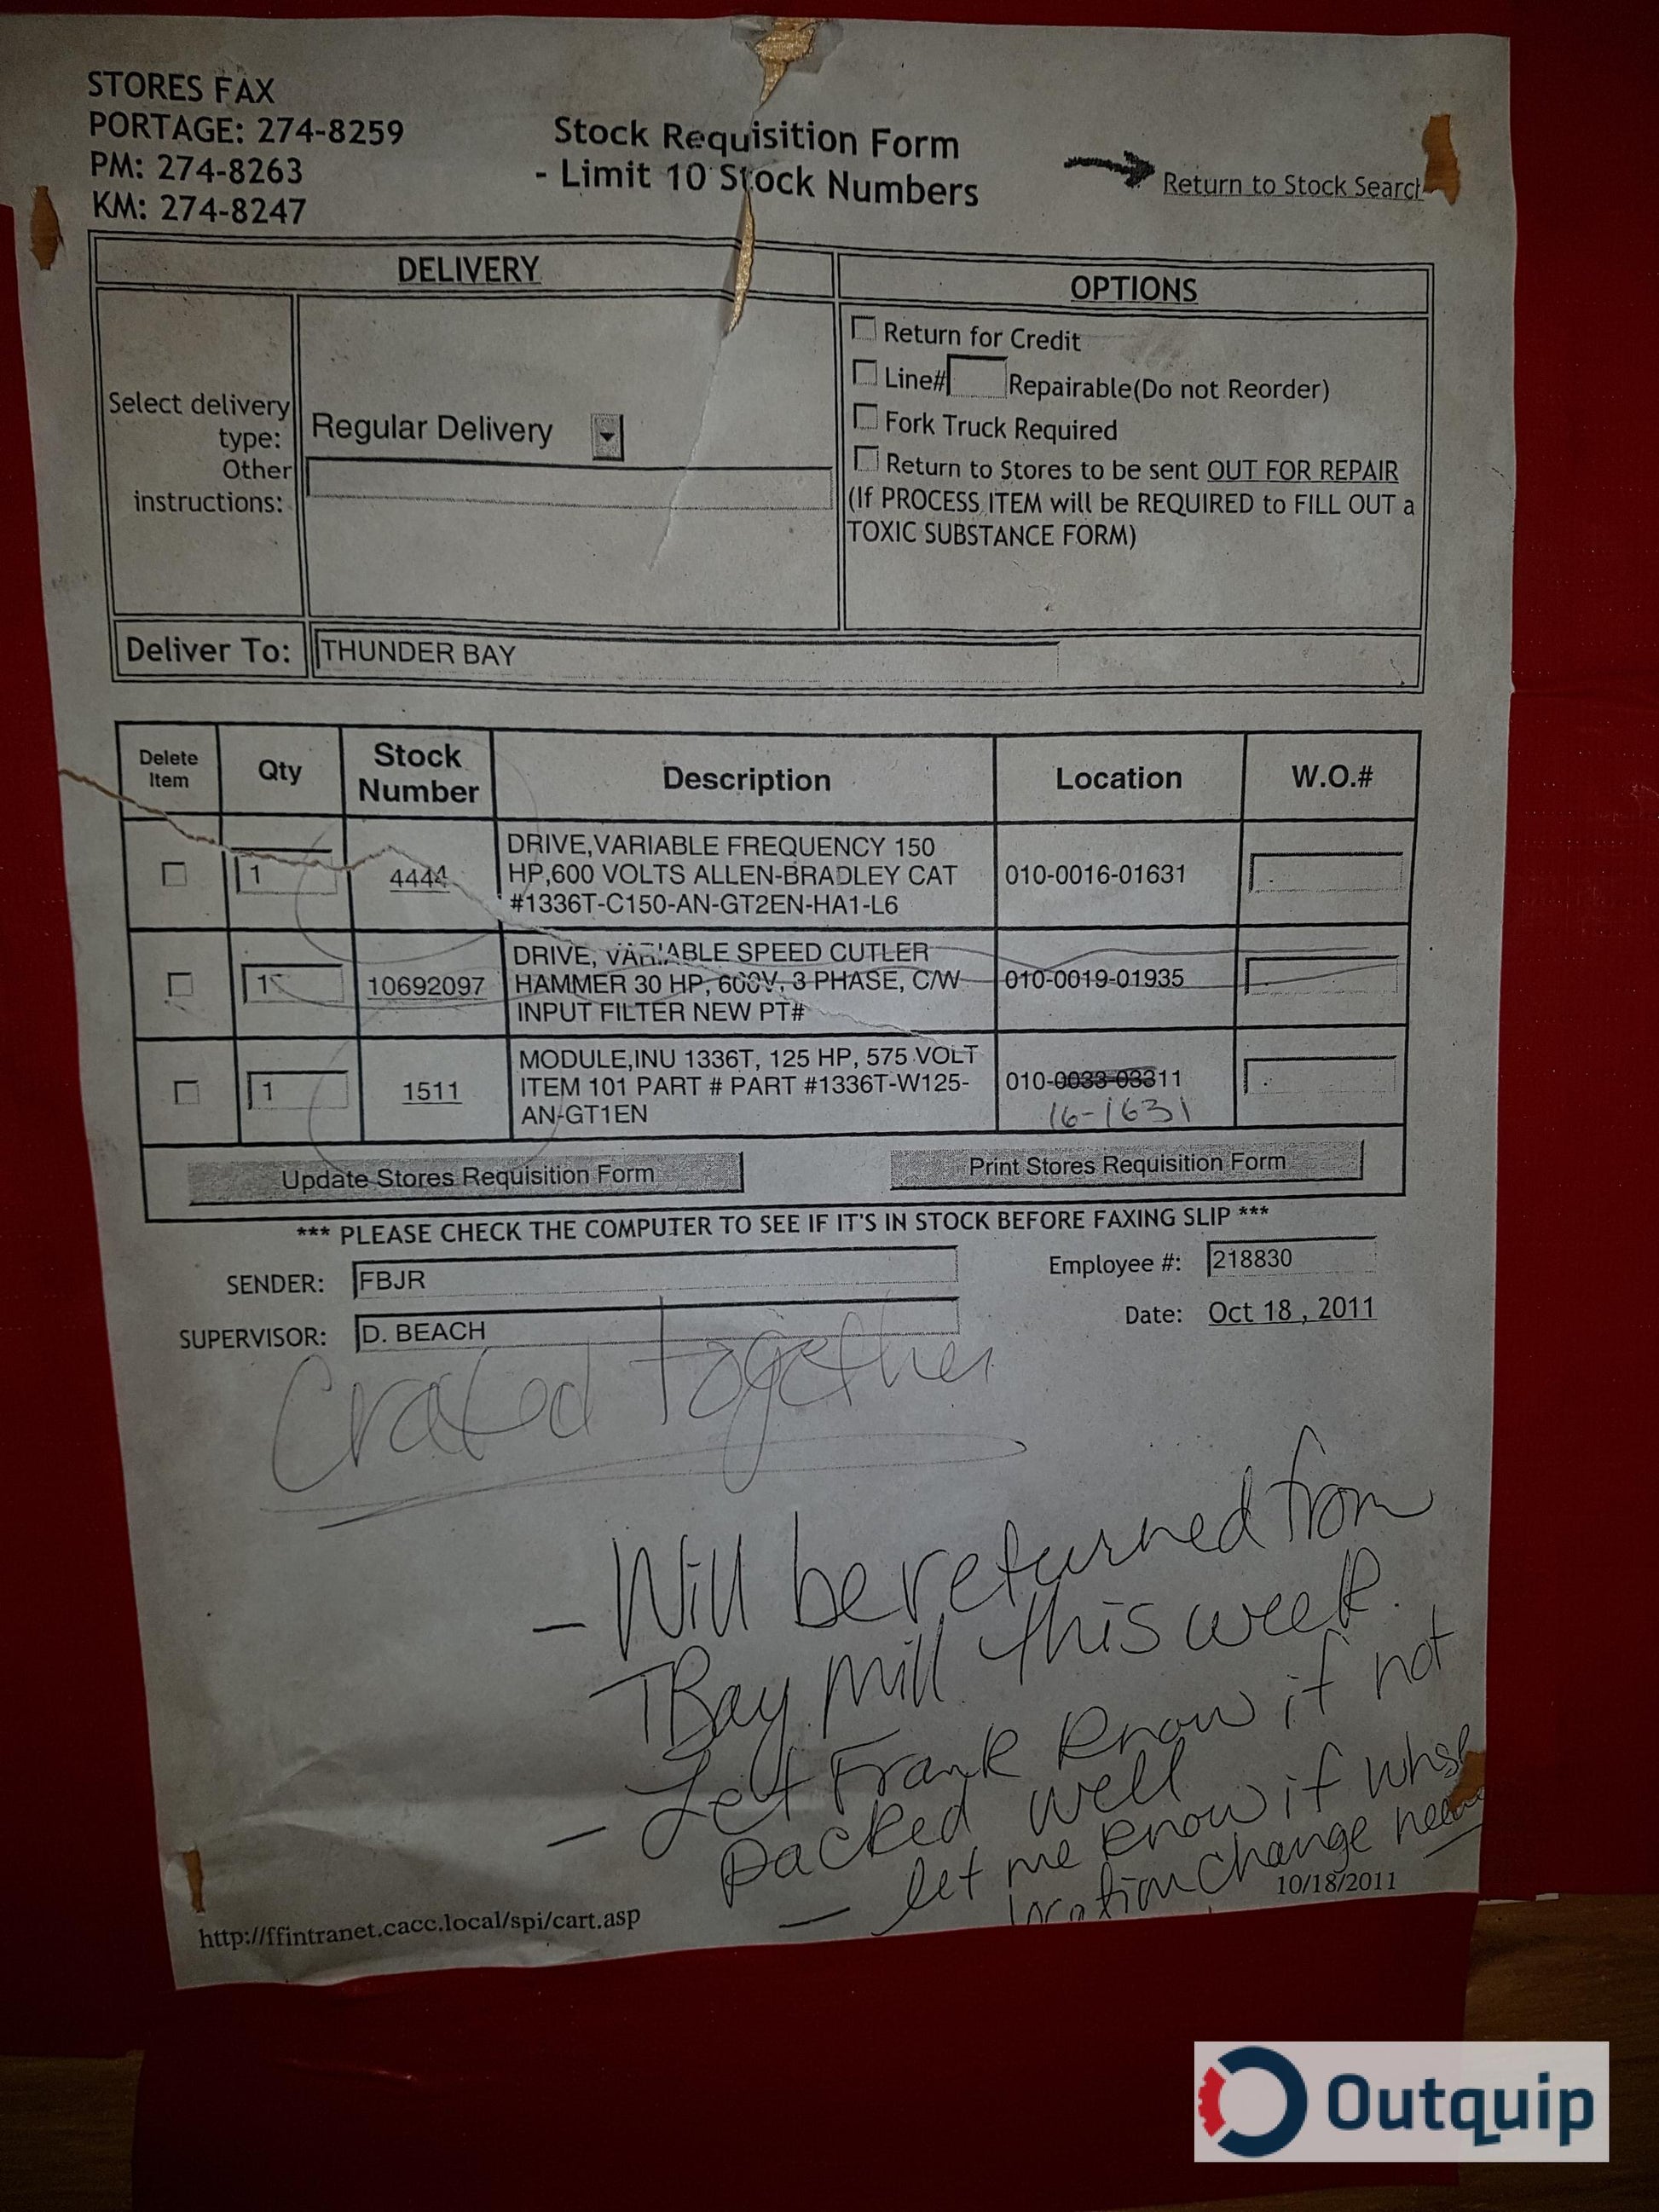 STORES FAX
PORTAGE: 274-8259
PM: 274-8263
KM: 274-8247
Stock Requisition Form
- Limit 10 Stock Numbers
Return to Stock Search
DELIVERY
OPTIONS
Select delivery type:
Regular Delivery
Other instructions:
Return for Credit
Line# Repairable(Do not Reorder)
Fork Truck Required
Return to Stores to be sent OUT FOR REPAIR
(If PROCESS ITEM will be REQUIRED to FILL OUT a
TOXIC SUBSTANCE FORM)
Deliver To: THUNDER BAY
Delete Item Qty Stock Number Description Location W.O.#
1 4444 DRIVE,VARIABLE FREQUENCY 150 010-0016-01631
HP,600 VOLTS ALLEN-BRADLEY CAT
#1336T-C150-AN-GT2EN-HA1-L6
1 10692097 DRIVE, VARIABLE SPEED CUTLER 010-0019-01935
HAMMER 30 HP, 600V, 3 PHASE, C/W
INPUT FILTER NEW PT#
1 1511 MODULE,INU 1336T, 125 HP, 575 VOLT 010-0033-03311
ITEM 101 PART # PART #1336T-W125-
AN-GT1EN
16-1631
Update Stores Requisition Form
Print Stores Requisition Form
*** PLEASE CHECK THE COMPUTER TO SEE IF IT'S IN STOCK BEFORE FAXING SLIP ***
SENDER: FBJR
Employee #: 218830
SUPERVISOR: D. BEACH
Date: Oct 18 , 2011
Crated together
- Will be returned from
TBay mill this week.
- Let Frank know if not
packed well
- let me know if whse
location change
10/18/2011
http://ffintranet.cacc.local/spi/cart.asp
Outquip